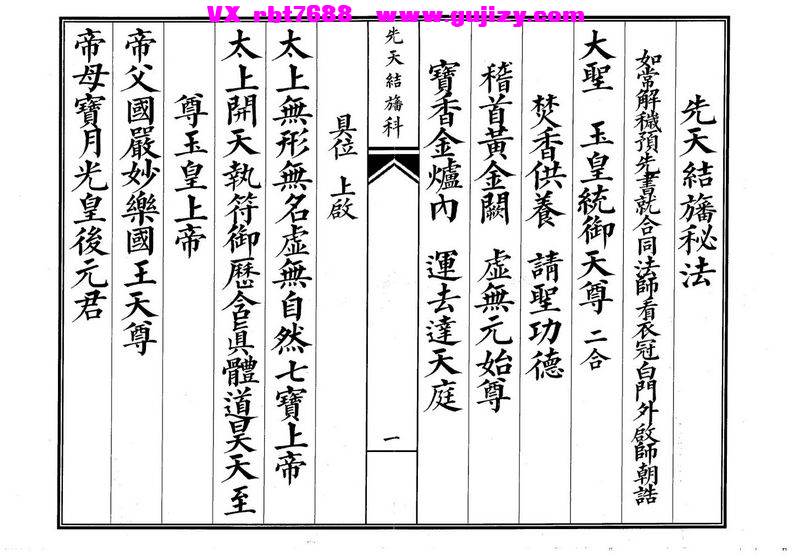 VX rbt7688   www.gujizy.com
先天結旛秘法
如常解穢預先書就合同法師看衣冠白門外啟師朝誥
大聖 玉皇統御天尊 二合
焚香供養 請聖功德
稽首黃金闕 虛無元始尊
寶香金爐內 運去達天庭
先天結旛科
一
具位 上啟
太上無形無名虛無自然七寶上帝
太上開天執符御歷含真體道昊天至
尊玉皇上帝
帝父國嚴妙樂國王天尊
帝母寶月光皇後元君